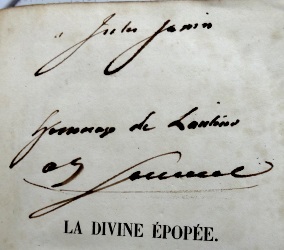 à Jules Janin
Hommage de l'auteur
A. Soumet
LA DIVINE ÉPOPÉE.